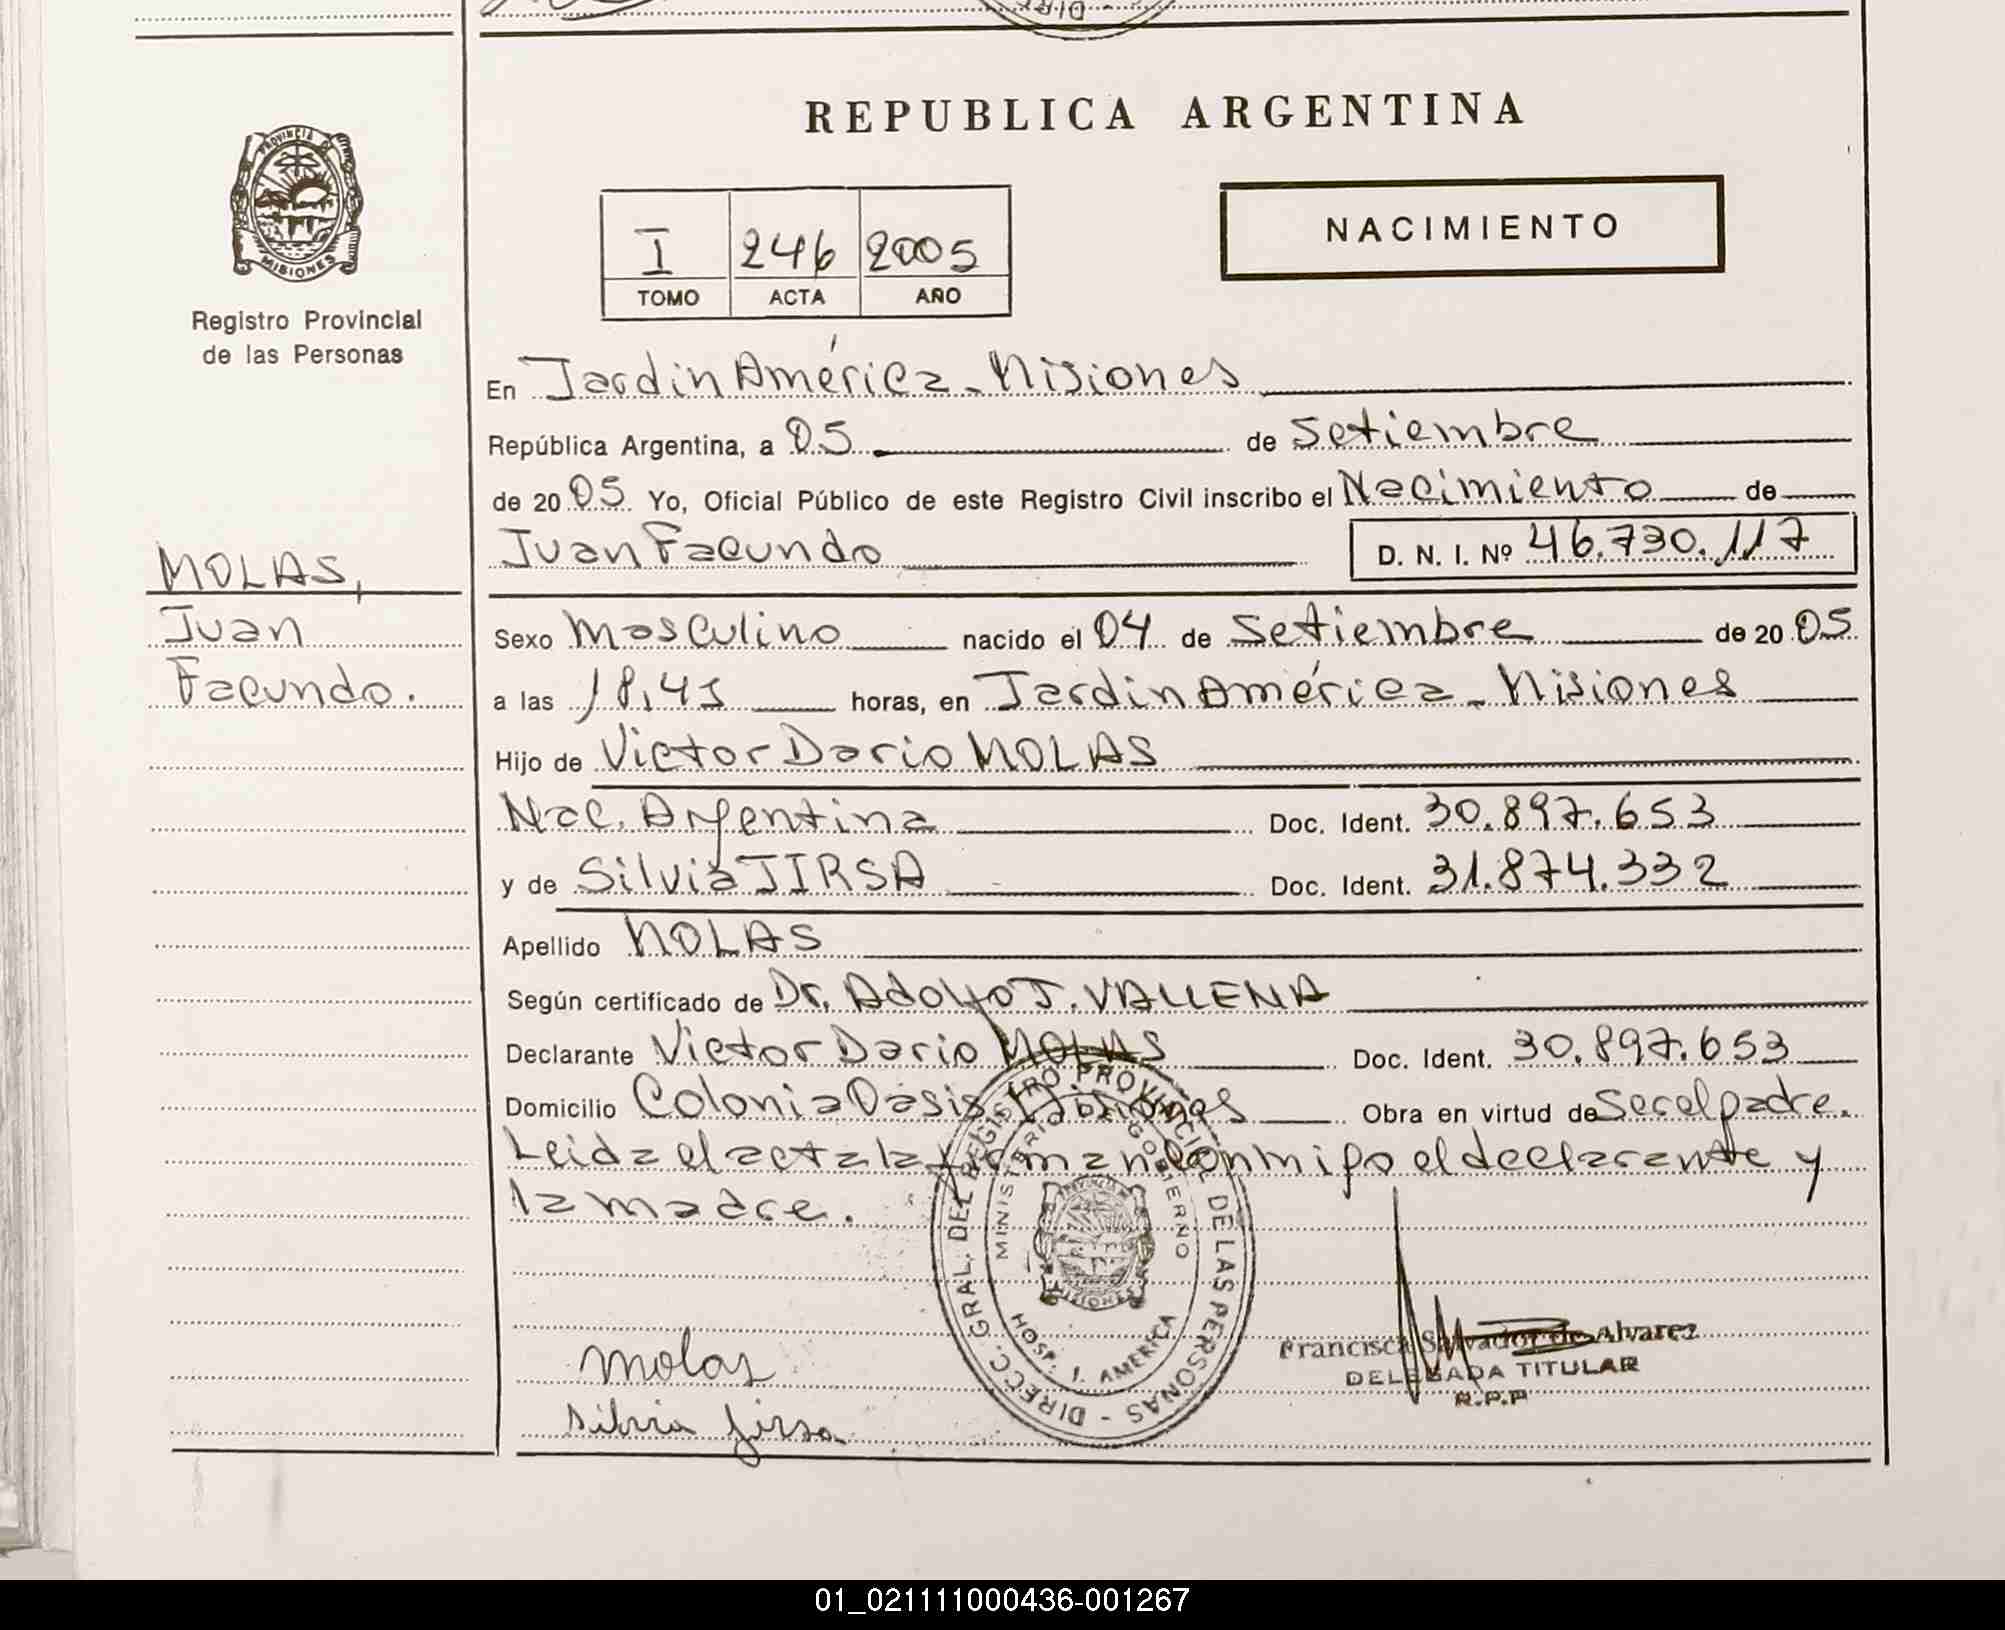 REPUBLICA ARGENTINA
PROVINCIA DE
MISIONES
Registro Provincial
de las Personas
NACIMIENTO
I 246 2005
TOMO ACTA AÑO
En Jardin América - Misiones
República Argentina, a 05 de Setiembre
de 20 05 Yo, Oficial Público de este Registro Civil inscribo el Nacimiento de
Juan Facundo D. N. I. Nº 46.730.117
MOLAS,
Juan
Facundo.
Sexo Masculino nacido el 04 de Setiembre de 20 05
a las 18,45 horas, en Jardin América - Misiones
Hijo de Victor Dario MOLAS
Nac. Argentina Doc. Ident. 30.897.653
y de Silvia JIRSA Doc. Ident. 31.874.332
Apellido MOLAS
Según certificado de Dr. Adolfo J. VALLENA
Declarante Victor Dario MOLAS Doc. Ident. 30.897.653
Domicilio Colonia Oasis - Misiones Obra en virtud de Ser el padre.
Leida el acta la firman conmigo el declarante y
la madre.
DIRECC. GRAL. DEL REGISTRO PROVINCIAL DE LAS PERSONAS -
MINISTERIO GOBIERNO
MISIONES
HOSP. J. AMERICA
Molas
Silvia Jirsa
Francisca Salvador de Alvarez
DELEGADA TITULAR
R.P.P
01_021111000436-001267